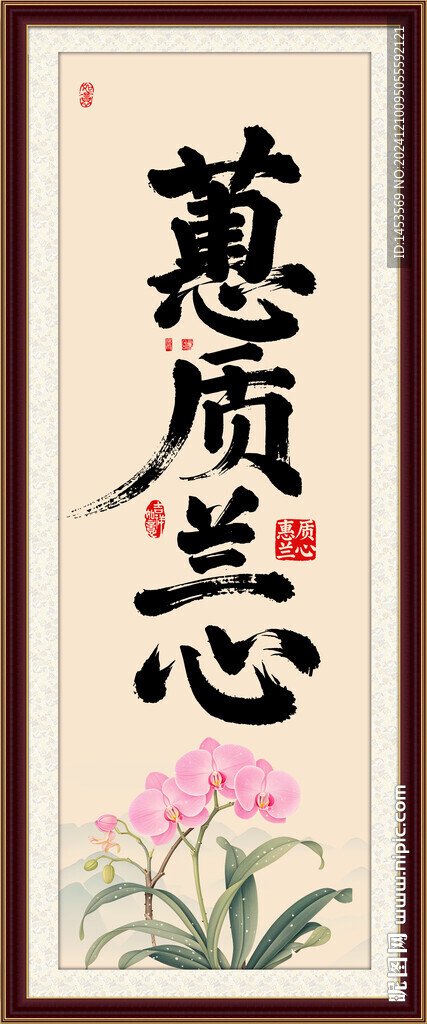 蕙质兰心
吉祥如意
惠质兰心
ID:1453569 NO.20241210095055592121
昵图网 www.nipic.com